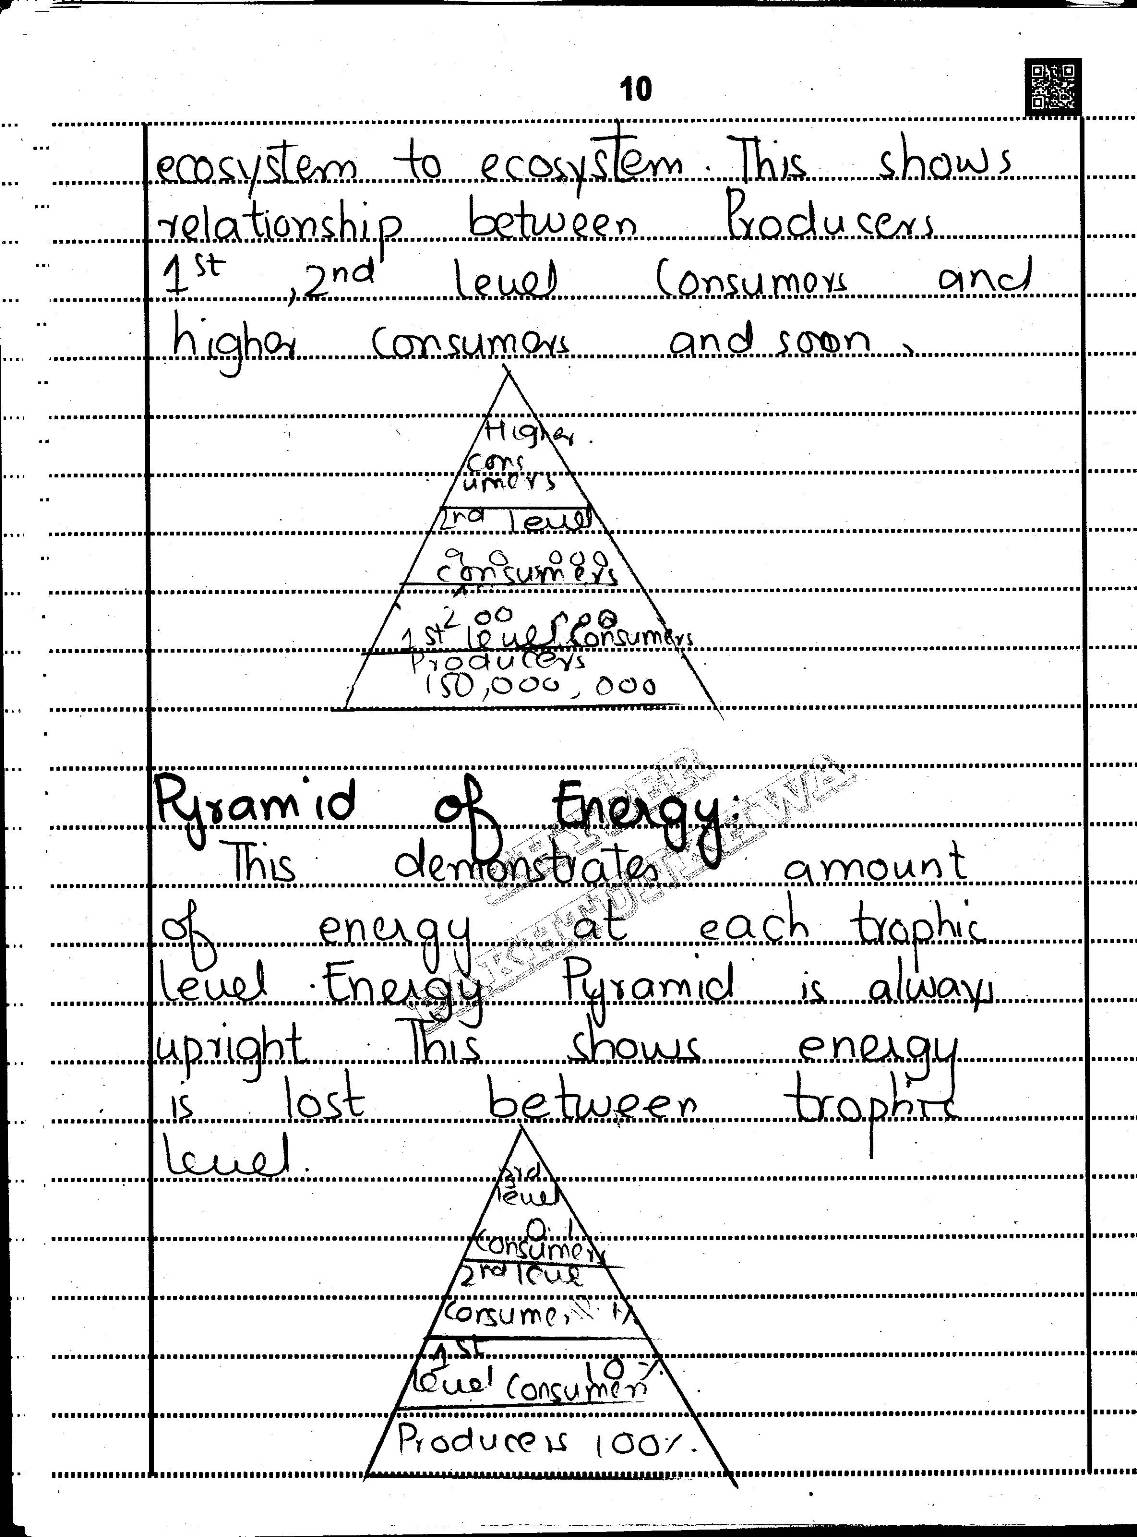 10
ecosystem to ecosystem. This shows
relationship between Producers
1st, 2nd level Consumers and
higher Consumers and soon,
Higher
cons
umers
2nd level
90 000
consumers
200 000
1st level Consumers
Producers
150,000,000
Pyramid of Energy:
This demonstrates amount
of energy at each trophic
level. Energy Pyramid is always
upright This shows energy
is lost between trophic
level.
3rd
level
0.1
Consumers
2nd level
Consumer 1%
1st
10%
level Consumers
Producers 100%.